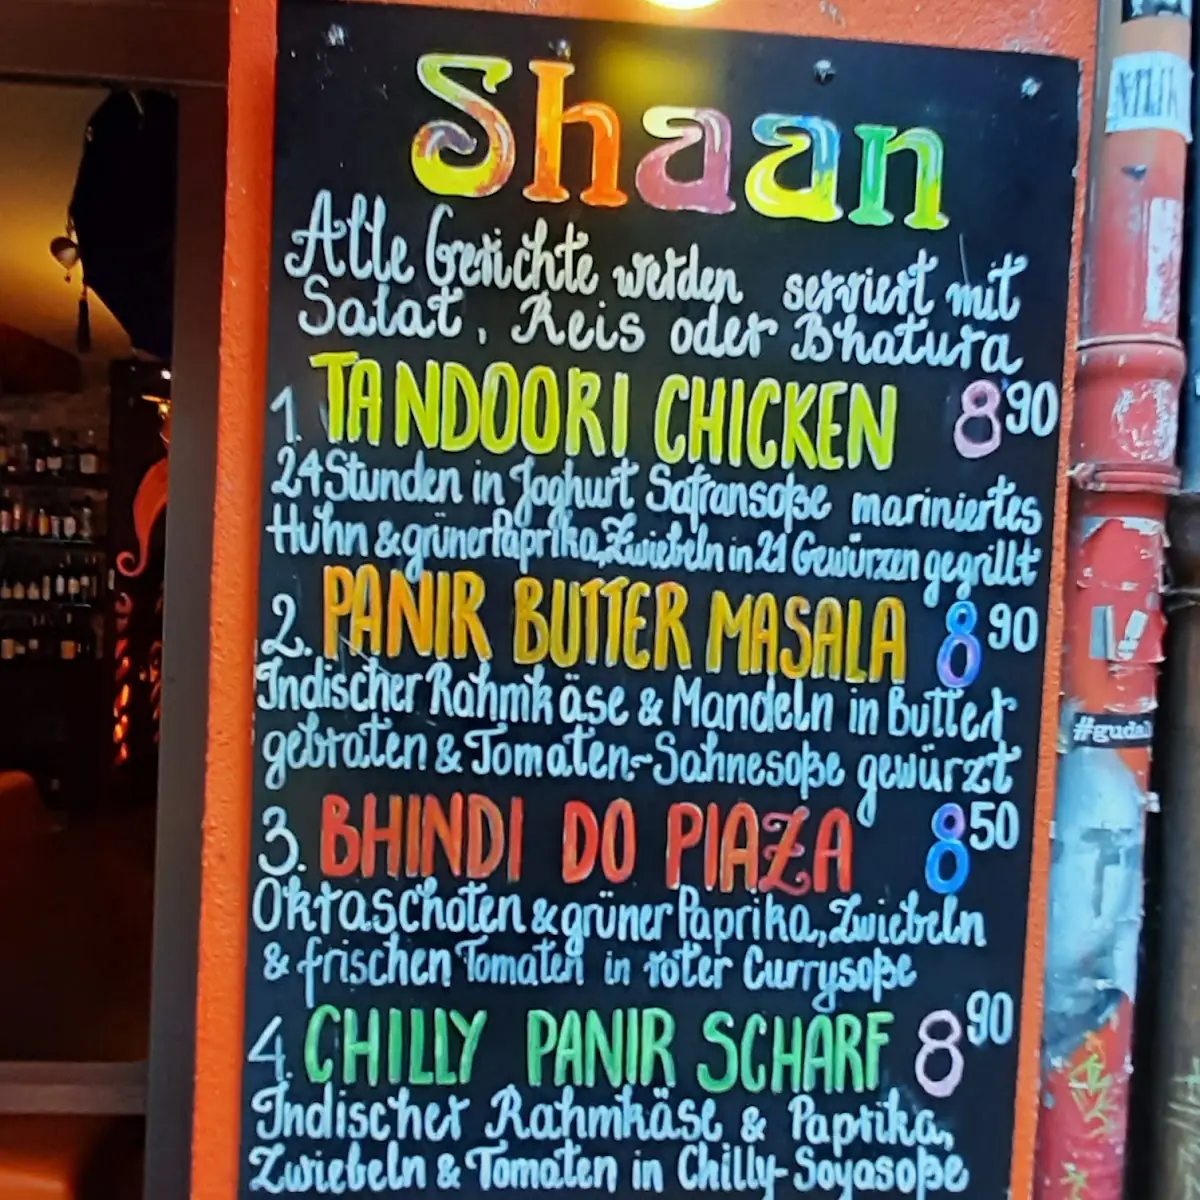 Shaan
Alle Gerichte werden serviert mit
Salat, Reis oder Bhatura
1. TANDOORI CHICKEN 8 90
24 Stunden in Joghurt Safransoße mariniertes
Huhn & grüner Paprika, Zwiebeln in 21 Gewürzen gegrillt
2. PANIR BUTTER MASALA 8 90
Indischer Rahmkäse & Mandeln in Butter
gebraten & Tomaten-Sahnesoße gewürzt
3. BHINDI DO PIAZA 8 50
Okraschoten & grüner Paprika, Zwiebeln
& frischen Tomaten in roter Currysoße
4. CHILLY PANIR SCHARF 8 90
Indischer Rahmkäse & Paprika,
Zwiebeln & Tomaten in Chilly-Soyasoße